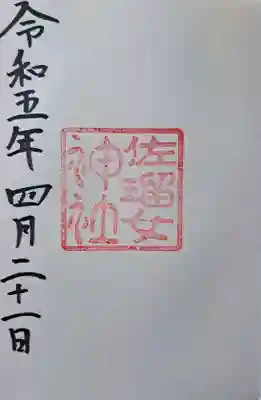 佐瑠女
神社
令和五年 四月二十一日